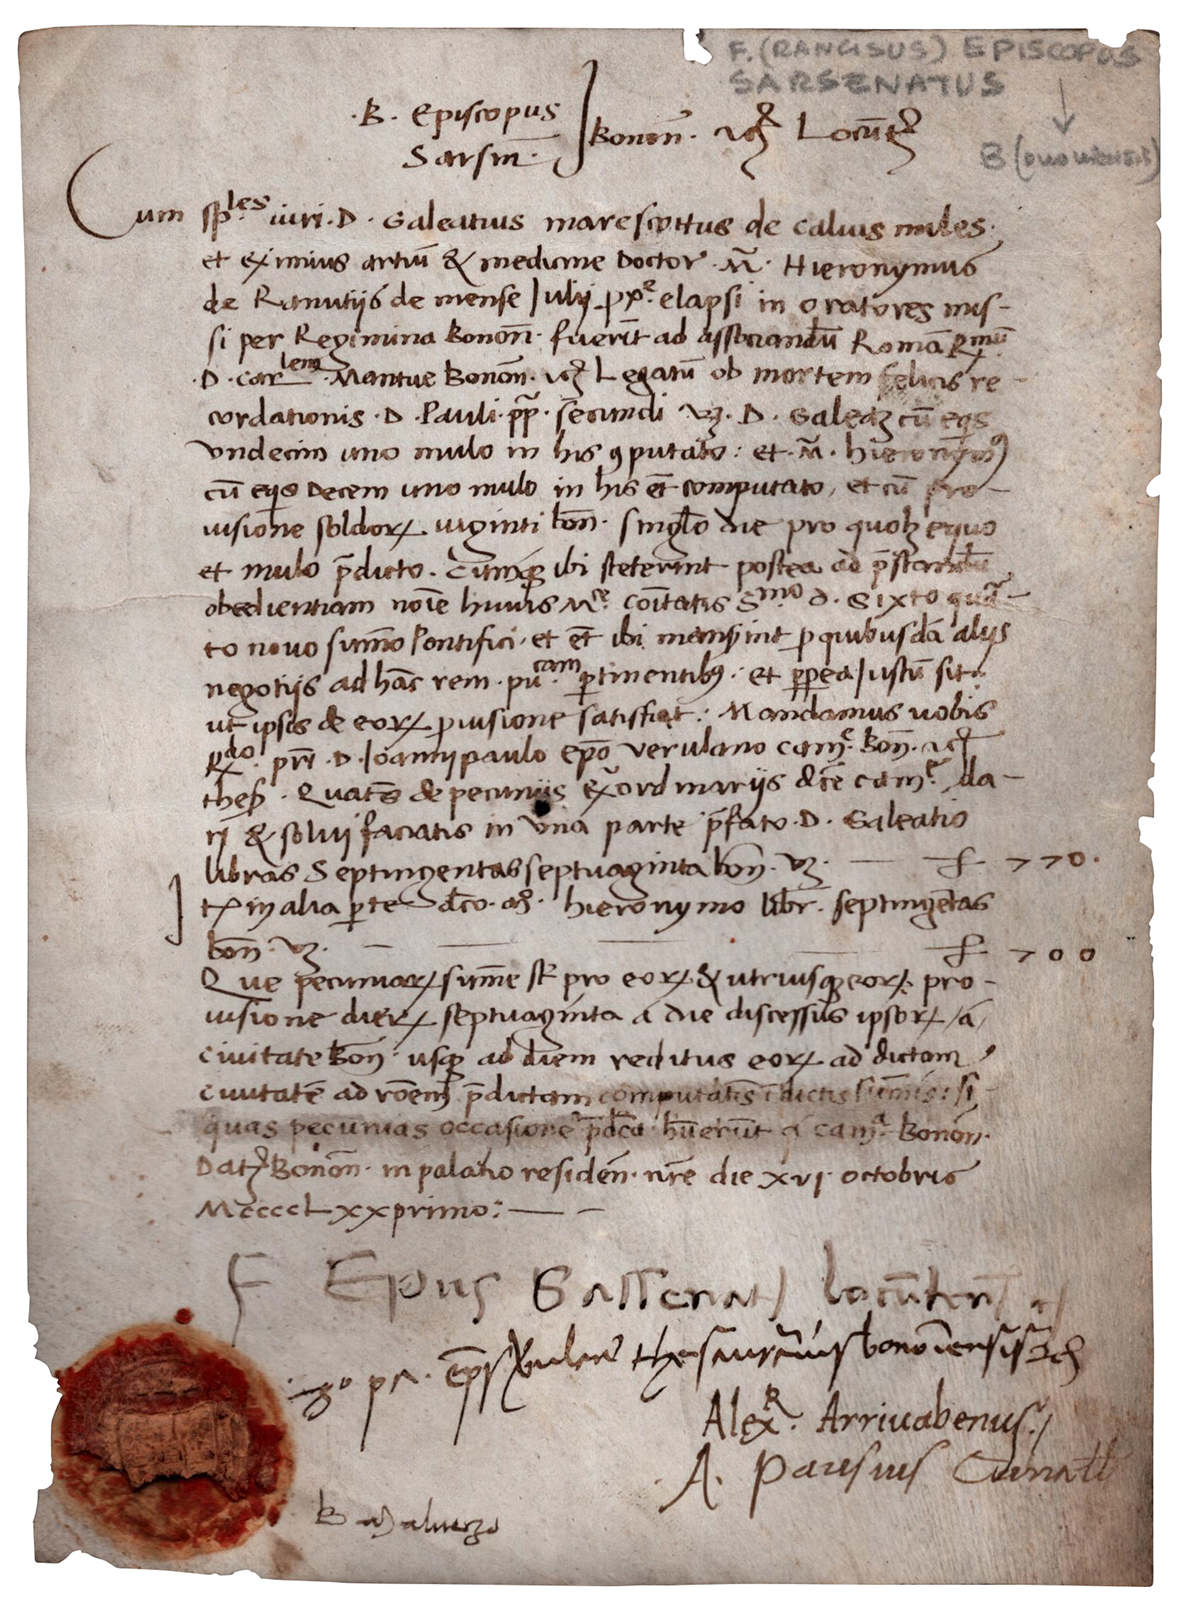 F. (RANCISUS) EPISCOPUS
SARSENATUS
B (ononiensis)
.B. Episcopus
Sarsin̄.
Bonon̄. &c̃ Locūt̃
Cum sp.les viri. D. Galeatius marescottus de Caluis miles.
et eximius artiū & medicine Doctor. M̃. Hieronymus
de Ranutijs de mense Julij .px̄e elapsi in oratores mis-
si per Regimina Bonon̄. fuerīt ad associandū Romā R.mū
.D. Car.lem Mantue Bonon̄. &c̃ Legatū ob mortem felicis re-
cordationis .D. Pauli .pp̃. secundi vz. D. Galeaz cū eqs
vndecim uno mulo in his 9putato: et .M̃. hieronym9
cū eqs Decem uno mulo in his et̄ computato, et cū pro-
uisione soldorꝝ uiginti bon̄. singlo die pro quolz equo
et mulo p̄dicto. Cumqꝫ ibi steterint postea ad p̄standū
obedientiam noīe huius M.ce Coītatis S.mo d. Sixto quar-
to nouo sum̄o Pontifici. et et̄ ibi manserint p quibusdā alijs
negotijs ad hāc rem .pu.cam ptinentibꝫ. et ppea Justū sit.
ut ipsis de eorꝝ puisione satisfiat: Mandamus uobis
R.do. pr̄i .D. Joannipaulo ep̄o verulano cam.e bon̄. &c̃
thes̄. Quatꝰ de pecunijs ex̄ordinarijs dc̄e cam.e da-
ri & solui faciatis in vna parte p̄fato .D. Galeatio
libras Septingentas septuaginta bon̄. vz. — £ 770.
Et in alia pte dc̄o .M̃. hieronymo libr. septingētas
bon̄. vz. — — — £ 700
Que pecuniarꝝ sum̄e st̄ pro eorꝝ & utriusqꝫ eorꝝ pro-
uisione dierꝝ septuaginta a die discessus ipsorꝝ /a/
ciuitate bon̄. usqꝫ ad diem reditus eorꝝ ad dictam
ciuitatē ad rōem p̄dictam computatis ī dictis sum̄is: si-
quas pecunias occasione p̄dc̄a hūerūt a cam.a Bonon̄.
Dat̃ Bonon̄. in palatio residen̄. nr̄e die xvj octobris
MccccLxxprimo: — —
F Ep̄us Sassenat̃ locūten̄ &c̃
ep̄s thesaurarius bononiensis &c̃
Alex.R Arriuabenus.
A. Parisius
B Maluezo